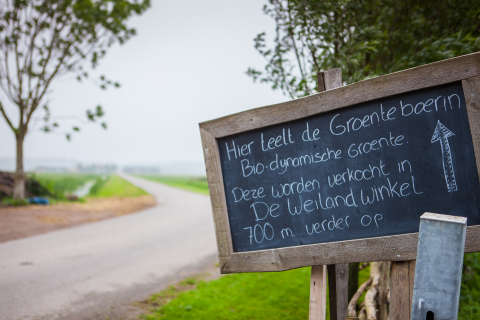 Hier teelt de Groenteboerin
Bio-dynamische Groente.
Deze worden verkocht in
De Weilandwinkel
700 m. verder op